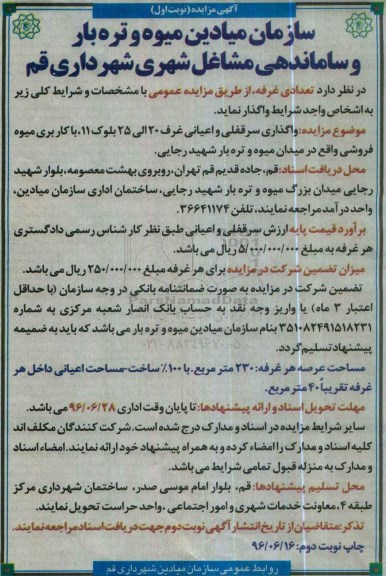 آگهی مزایده (نوبت اول)
سازمان میادین میوه و تره بار
و ساماندهی مشاغل شهری شهرداری قم
در نظر دارد تعدادی غرفه، از طریق مزایده عمومی با مشخصات و شرایط کلی زیر
به اشخاص واجد شرایط واگذار نماید.
موضوع مزایده: واگذاری سرقفلی و اعیانی غرف ۲۰ الی ۲۵ بلوک ۱۱، با کاربری میوه
فروشی واقع در میدان میوه و تره بار شهید رجایی.
محل دریافت اسناد: قم، جاده قدیم قم تهران، روبروی بهشت معصومه، بلوار شهید
رجایی میدان بزرگ میوه و تره بار شهید رجایی، ساختمان اداری سازمان میادین،
واحد درآمد مراجعه نمایند، تلفن ۳۶۶۴۱۱۷۴.
برآورد قیمت پایه ارزش سرقفلی و اعیانی طبق نظر کارشناس رسمی دادگستری
هر غرفه به مبلغ ۵/۰۰۰/۰۰۰/۰۰۰ ریال می باشد.
میزان تضمین شرکت در مزایده برای هر غرفه مبلغ ۲۵۰/۰۰۰/۰۰۰ ریال می باشد.
تضمین شرکت در مزایده به صورت ضمانتنامه بانکی در وجه سازمان (با حداقل
اعتبار ۳ ماه) یا واریز وجه نقد به حساب بانک انصار شعبه مرکزی به شماره
۳۵۱۰۸۲۴۹۱۵۱۸۲۳۱ بنام سازمان میادین میوه و تره بار می باشد که باید به ضمیمه
پیشنهاد تسلیم گردد.
مساحت عرصه هر غرفه: ۲۳۰ متر مربع. با ۱۰۰٪ ساخت-مساحت اعیانی داخل هر
غرفه تقریباً ۴۰ متر مربع.
مهلت تحویل اسناد و ارائه پیشنهادها: تا پایان وقت اداری ۹۶/۰۶/۲۸ می باشد.
سایر شرایط مزایده در اسناد و مدارک درج شده است. شرکت کنندگان مکلف اند
کلیه اسناد و مدارک را امضاء کرده و به همراه پیشنهاد خود ارائه نمایند. امضاء اسناد
و مدارک به منزله قبول تمامی شرایط می باشد.
محل تسلیم پیشنهادها: قم، بلوار امام موسی صدر، ساختمان شهرداری مرکز
طبقه ۴، معاونت خدمات شهری و امور اجتماعی، واحد حراست تحویل نمایند.
تذکر: متقاضیان از تاریخ انتشار آگهی نوبت دوم جهت دریافت اسناد مراجعه نمایند.
چاپ نوبت دوم: ۹۶/۰۶/۱۶
روابط عمومی سازمان میادین شهرداری قم